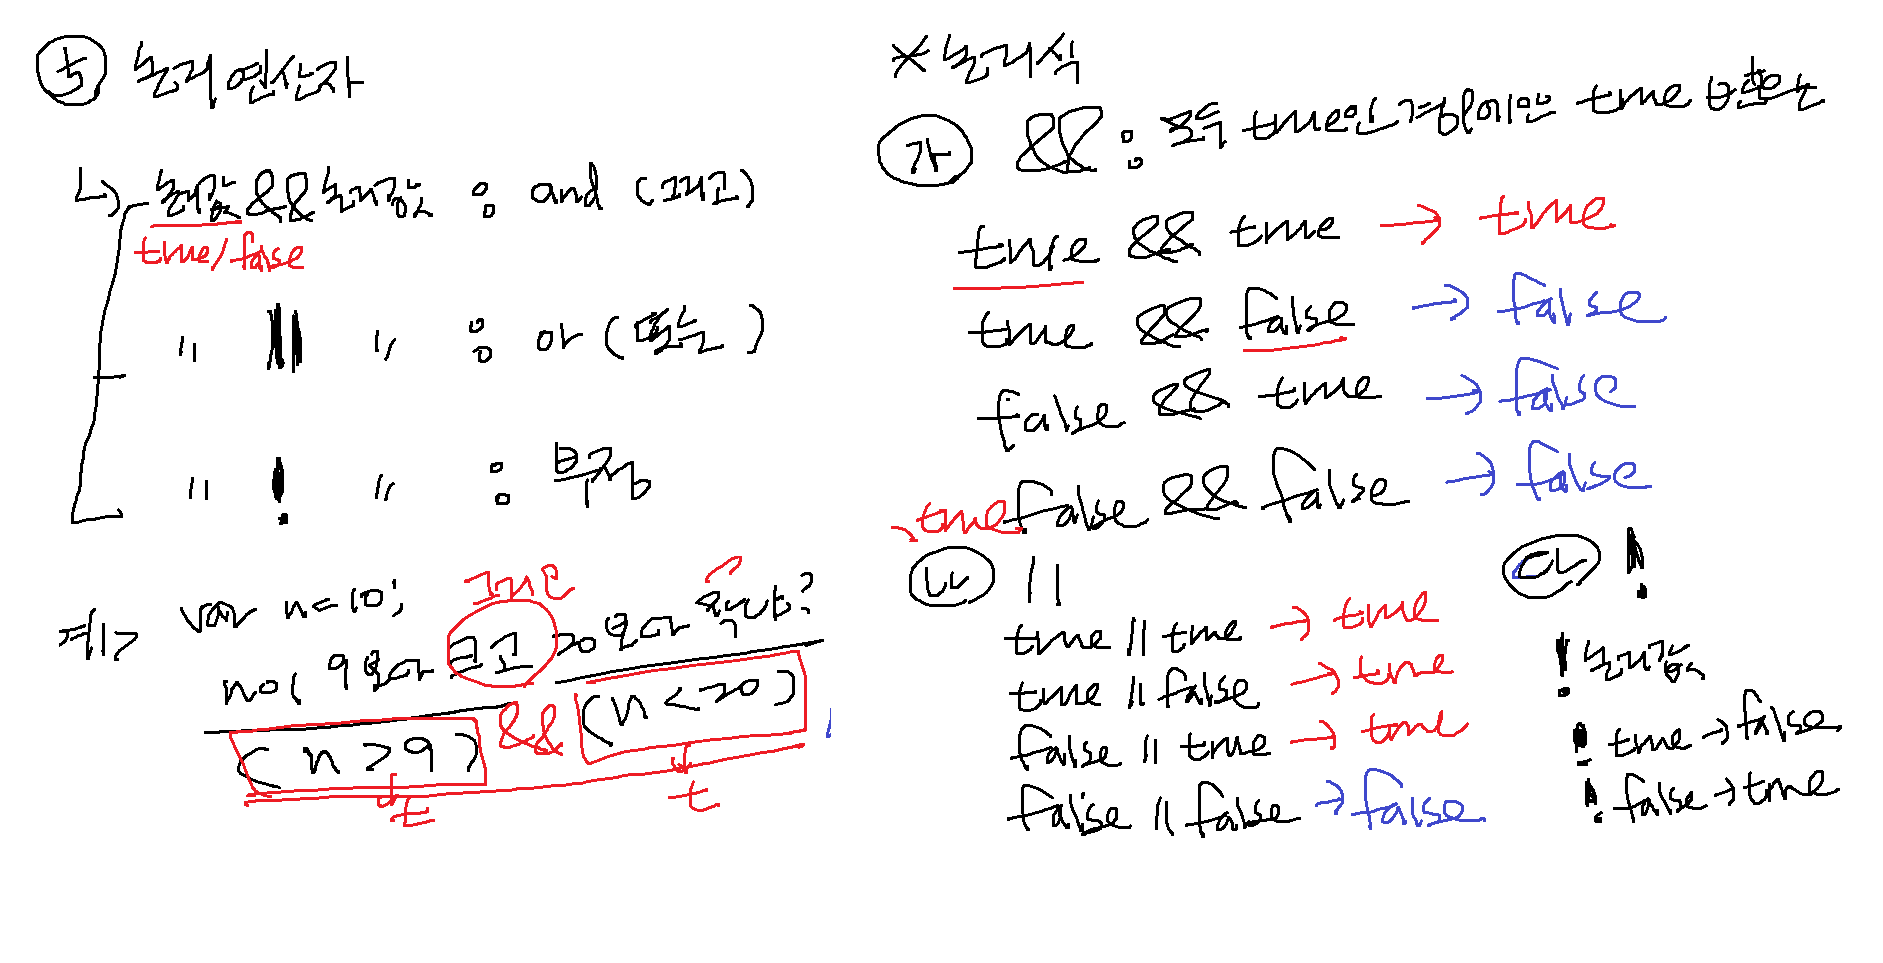 5 논리연산자
↳ 논리값 && 논리값 : and (그리고)
true/false
" || " : or (또는)
" ! " : 부정
예1> var n=10;
그리고
n이 9보다 크고 20보다 작냐?
(n > 9) && (n < 20)
t t
* 논리식
가 && : 모두 true인 경우에만 true 반환
true && true → true
true && false → false
false && true → false
false && false → false
true
나 ||
true || true → true
true || false → true
false || true → true
false || false → false
다 !
! 논리값
! true → false
! false → true